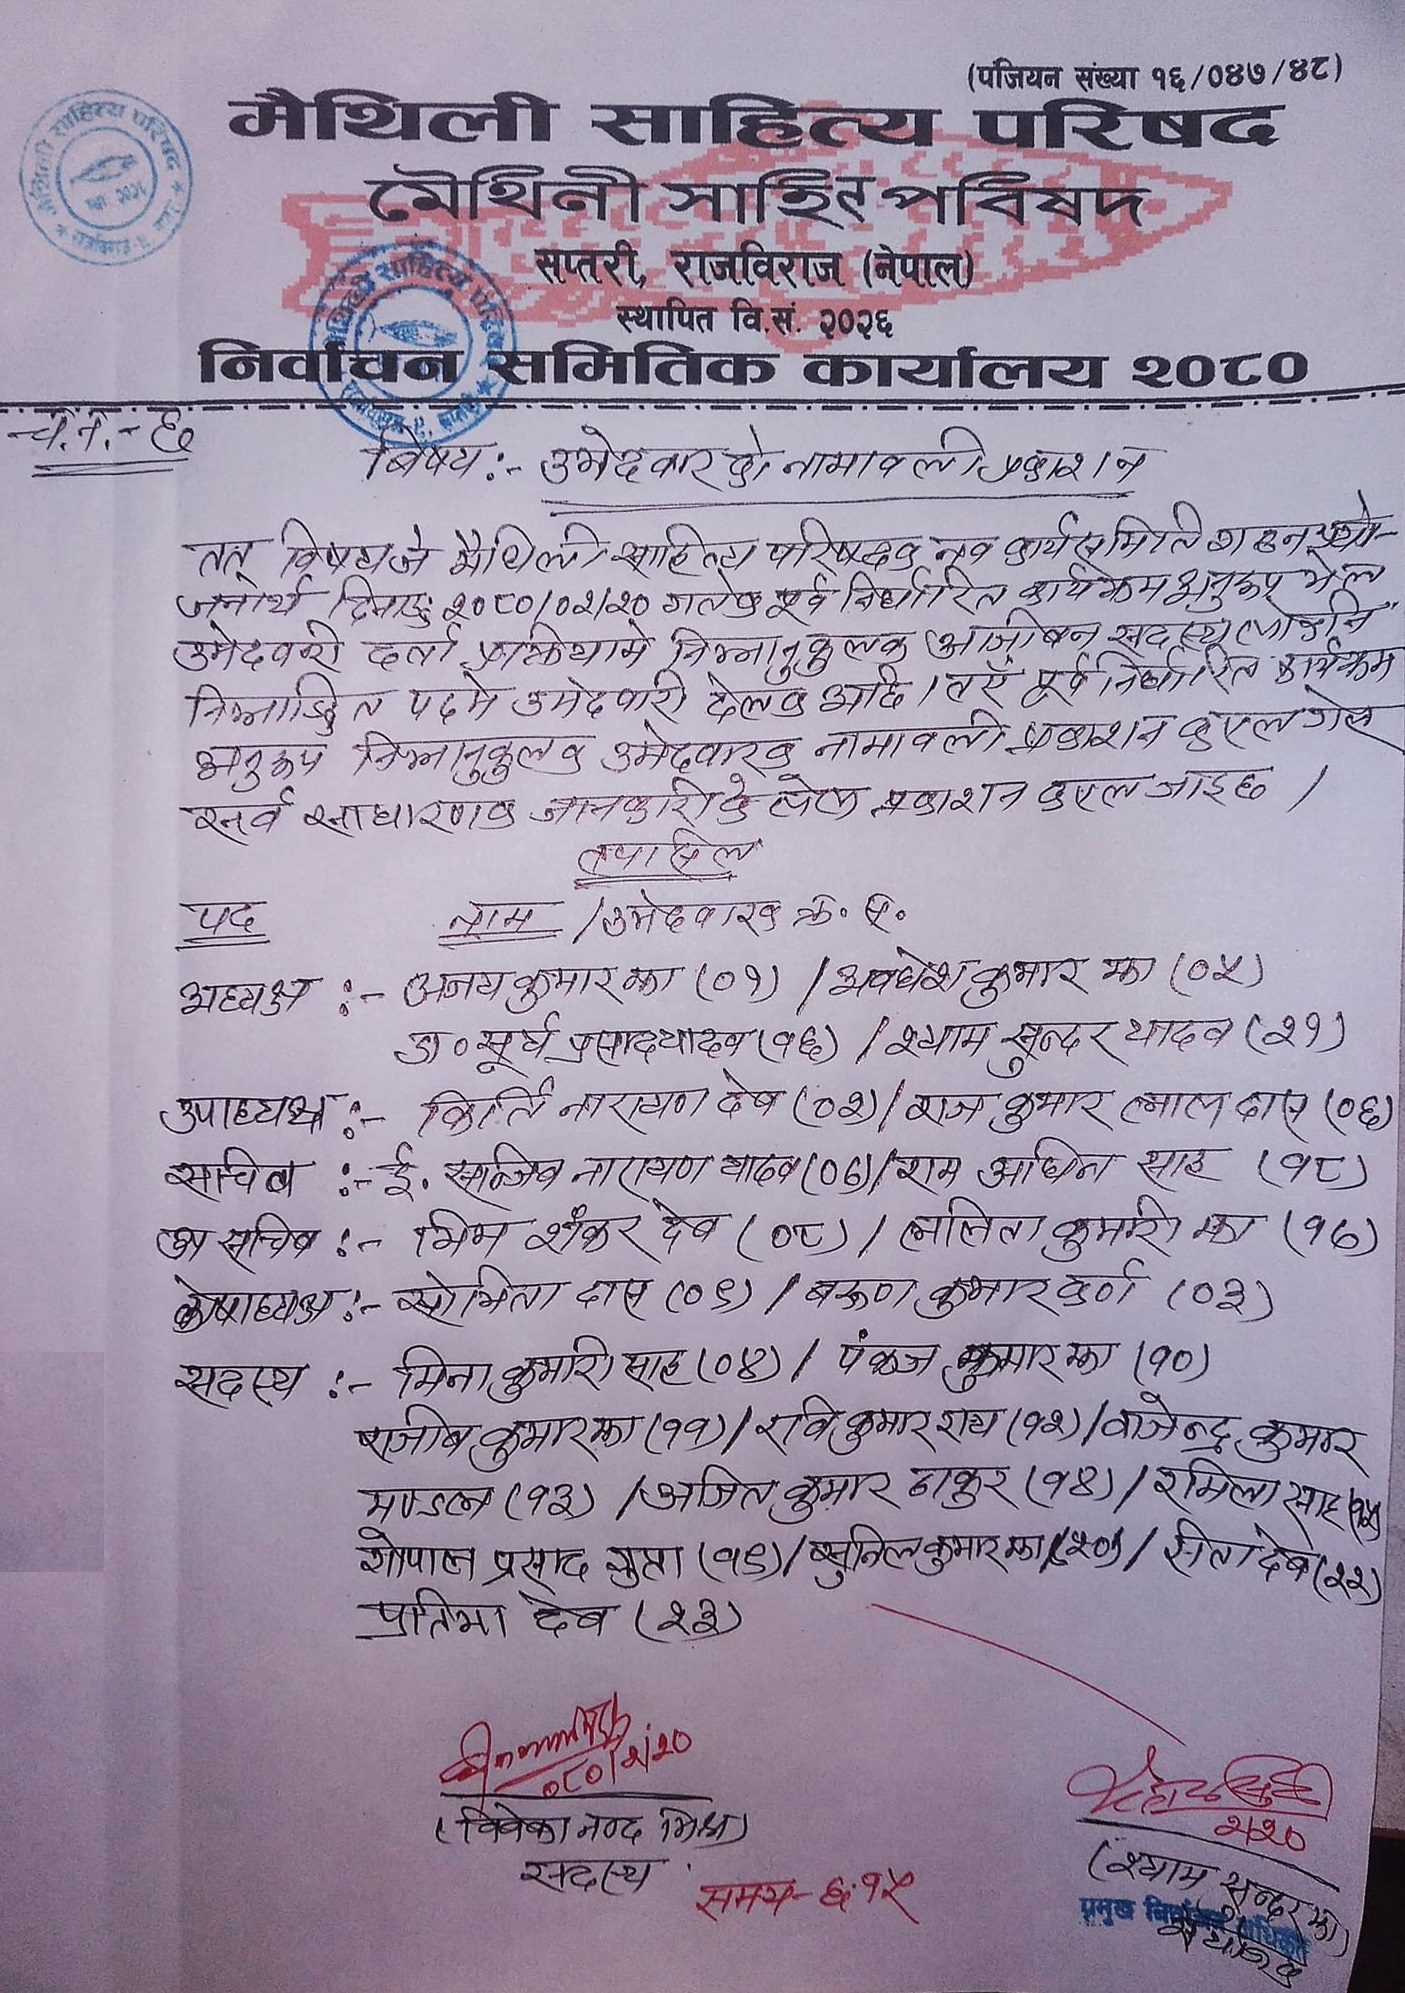 (पंजियन संख्या १६/०४७/४८)
मैथिली साहित्य परिषद
सप्तरी, राजविराज (नेपाल)
स्थापित वि.सं. २०२६
निर्वाचन समितिक कार्यालय २०८०
च.नं.- ६०
बिषय:- उमेदवारको नामावली प्रकाशन
तत् विषयजे मैथिली साहित्य परिषदक नव कार्यसमिति गठन प्रयो-
जनार्थ दिनाङ्क: २०८०/०२/२० गतेक पूर्व निर्धारित कार्यक्रम अनुरूप भेल
उमेदवारी दर्ता प्रक्रियामे निम्नानुकुलक आजीवन सदस्य लोकनि
निम्नाङ्कित पदमे उमेदवारी देलक अदि। तएँ पूर्व निर्धारित कार्यक्रम
अनुरूप निम्नानुकुलक उमेदवारक नामावली प्रकाशन कएल गेल
सर्व साधारणक जानकारीके लेल प्रकाशन कएल जाइछ।
तपासिल
पद नाम /उमेदवारक क्र. स.
अध्यक्ष :- अजय कुमार झा (०१) /अवधेश कुमार झा (०५)
डा० सूर्य प्रसाद यादव (१६) /श्याम सुन्दर यादव (२१)
उपाध्यक्ष :- किर्ति नारायण देव (०२)/राज कुमार लाल दास (०६)
सचिव :- ई. सन्जिव नारायण यादव (०७)/राम अधिन साह (१८)
उप सचिव :- भिम शंकर देव (०८) / ललिता कुमारी झा (१७)
कोषाध्यक्ष :- सोभिता दास (०९) / बरूण कुमार कर्ण (०३)
सदस्य :- मिना कुमारी साह (०४)/ पंकज कुमार झा (१०)
राजीब कुमार झा (११)/रवि कुमार राय (१२)/वाजेन्द्र कुमार
मण्डल (१३) /अजित कुमार ठाकुर (१४) / रमिला साह (१५)
गोपाल प्रसाद गुप्ता (१९)/सुनिल कुमार झा (२०)/ सिता देब (२२)
प्रतिमा देब (२३)
०८०/२/२०
२/२०
(विवेका नन्द मिश्र)
सदस्य
(श्याम सुन्दर झा)
समय- ६:१५
प्रमुख निर्वाचन अधिकृत
संयोजक